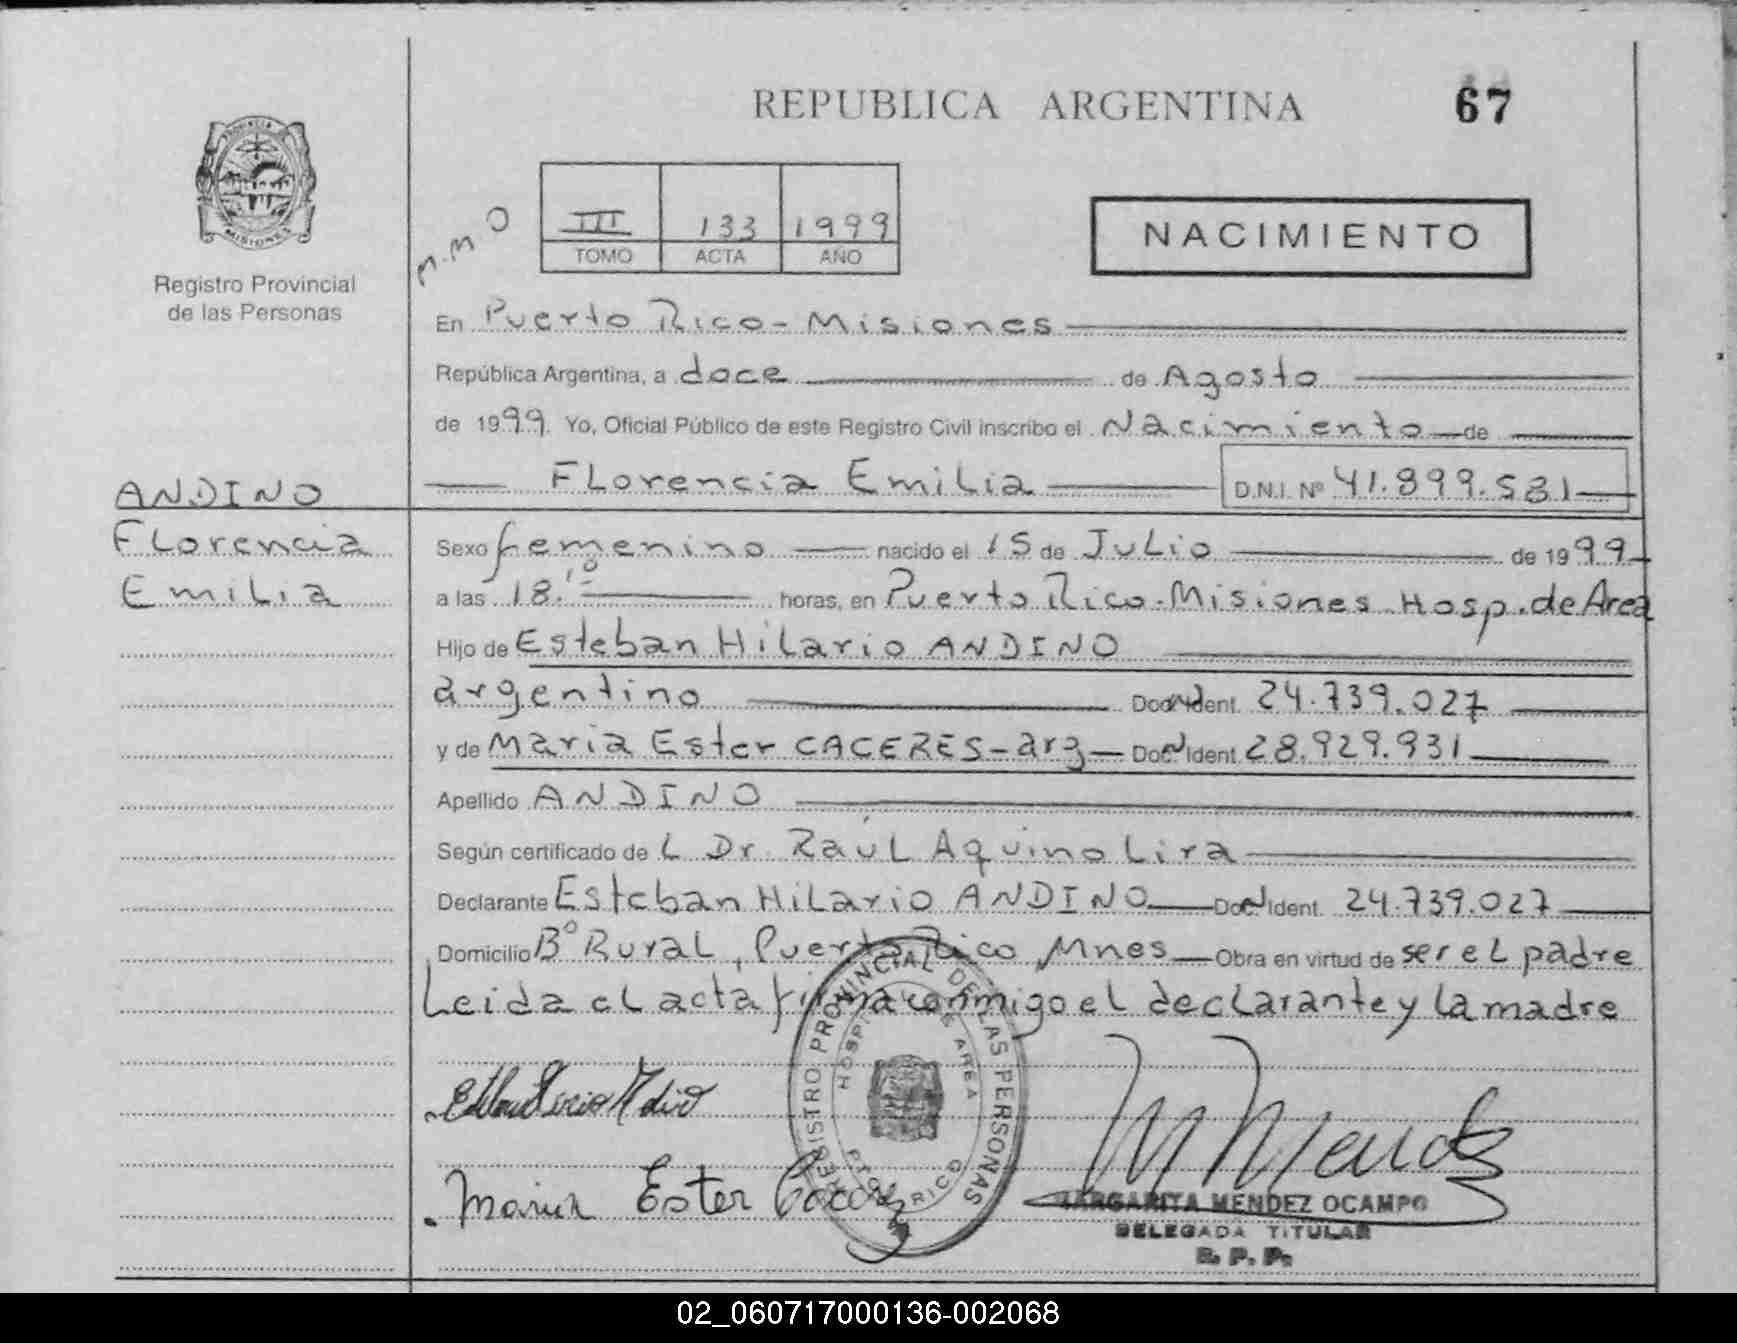 REPUBLICA ARGENTINA
67
PROVINCIA DE
MISIONES
Registro Provincial
de las Personas
M.M O
III 133 1999
TOMO ACTA AÑO
NACIMIENTO
En Puerto Rico - Misiones
República Argentina, a doce de Agosto
de 1999. Yo, Oficial Público de este Registro Civil inscribo el Nacimiento de
Florencia Emilia D.N.I. Nº 41.899.581
ANDINO
Florencia
Emilia
Sexo femenino nacido el 15 de Julio de 1999
a las 18.10 horas, en Puerto Rico - Misiones Hosp. de Area
Hijo de Esteban Hilario ANDINO
argentino Doc. Ident. 24.739.027
y de Maria Ester CACERES - arg - Doc. Ident. 28.929.931
Apellido ANDINO
Según certificado de L Dr. Raúl Aquino Lira
Declarante Esteban Hilario ANDINO Doc. Ident. 24.739.027
Domicilio Bº Rural, Puerto Rico, Mnes Obra en virtud de ser el padre
Leida el acta firma conmigo el declarante y la madre
REGISTRO PROVINCIAL DE LAS PERSONAS
HOSPITAL DE AREA
PTO. RICO
M Mendez
Maria Ester
MARGARITA MENDEZ OCAMPO
DELEGADA TITULAR
R. P. P.
02_060717000136-002068